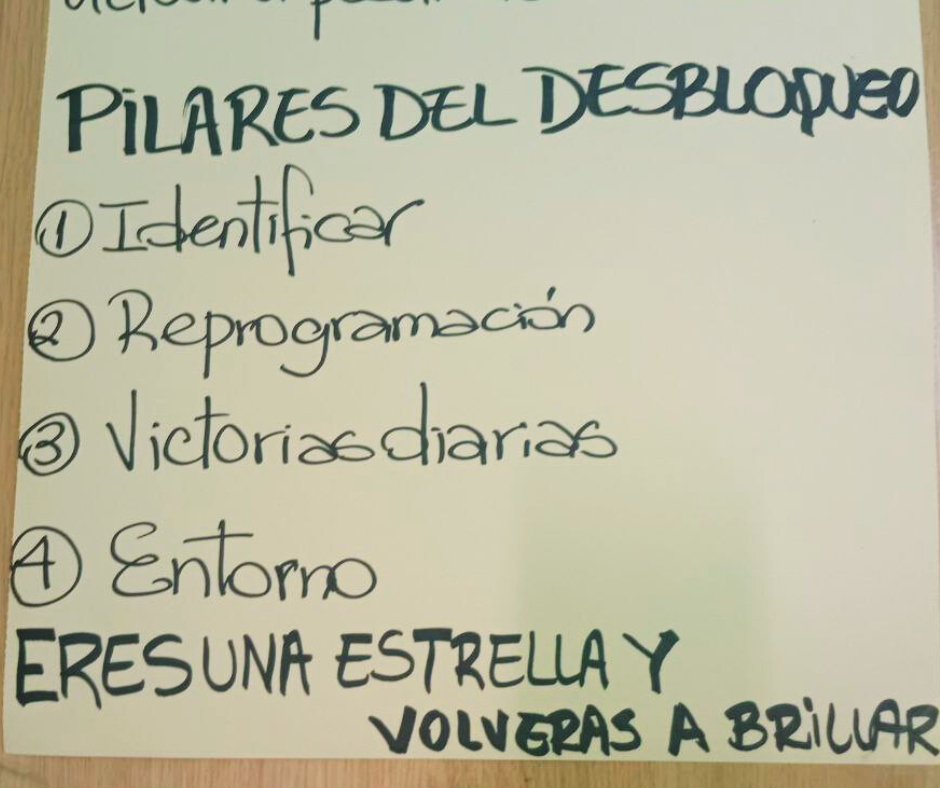 PILARES DEL DESBLOQUEO
① Identificar
② Reprogramación
③ Victorias diarias
④ Entorno
ERES UNA ESTRELLA Y
VOLVERAS A BRILLAR